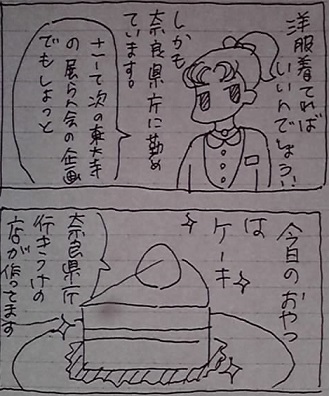 洋服着てれば
いいんでしょう!
しかも
奈良県庁に勤め
ています。
さーて次の東大寺
の展らん会の企画
でもしよっと
今日のおやつ
は
ケーキ
奈良県庁
行きつけの
店が作ってます